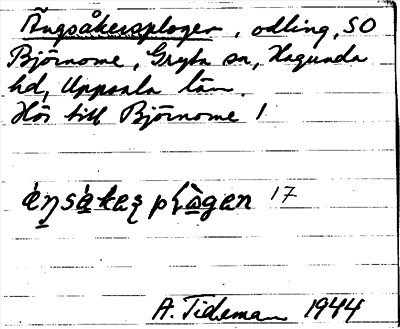 Ängsåkersplogen, odling, SO
Björnome, Gryta sn, Hagunda
hd, Uppsala län.
Hör till Björnome 1
17
A. Tideman 1944